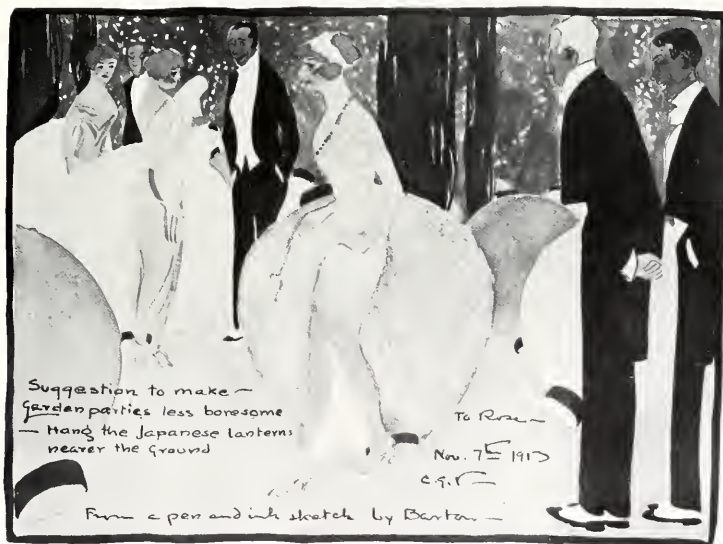 Suggestion to make —
Garden parties less boresome
— Hang the Japanese lanterns
nearer the Ground
To Rose —
Nov. 7th 1913
From a pen and ink sketch by Barton —